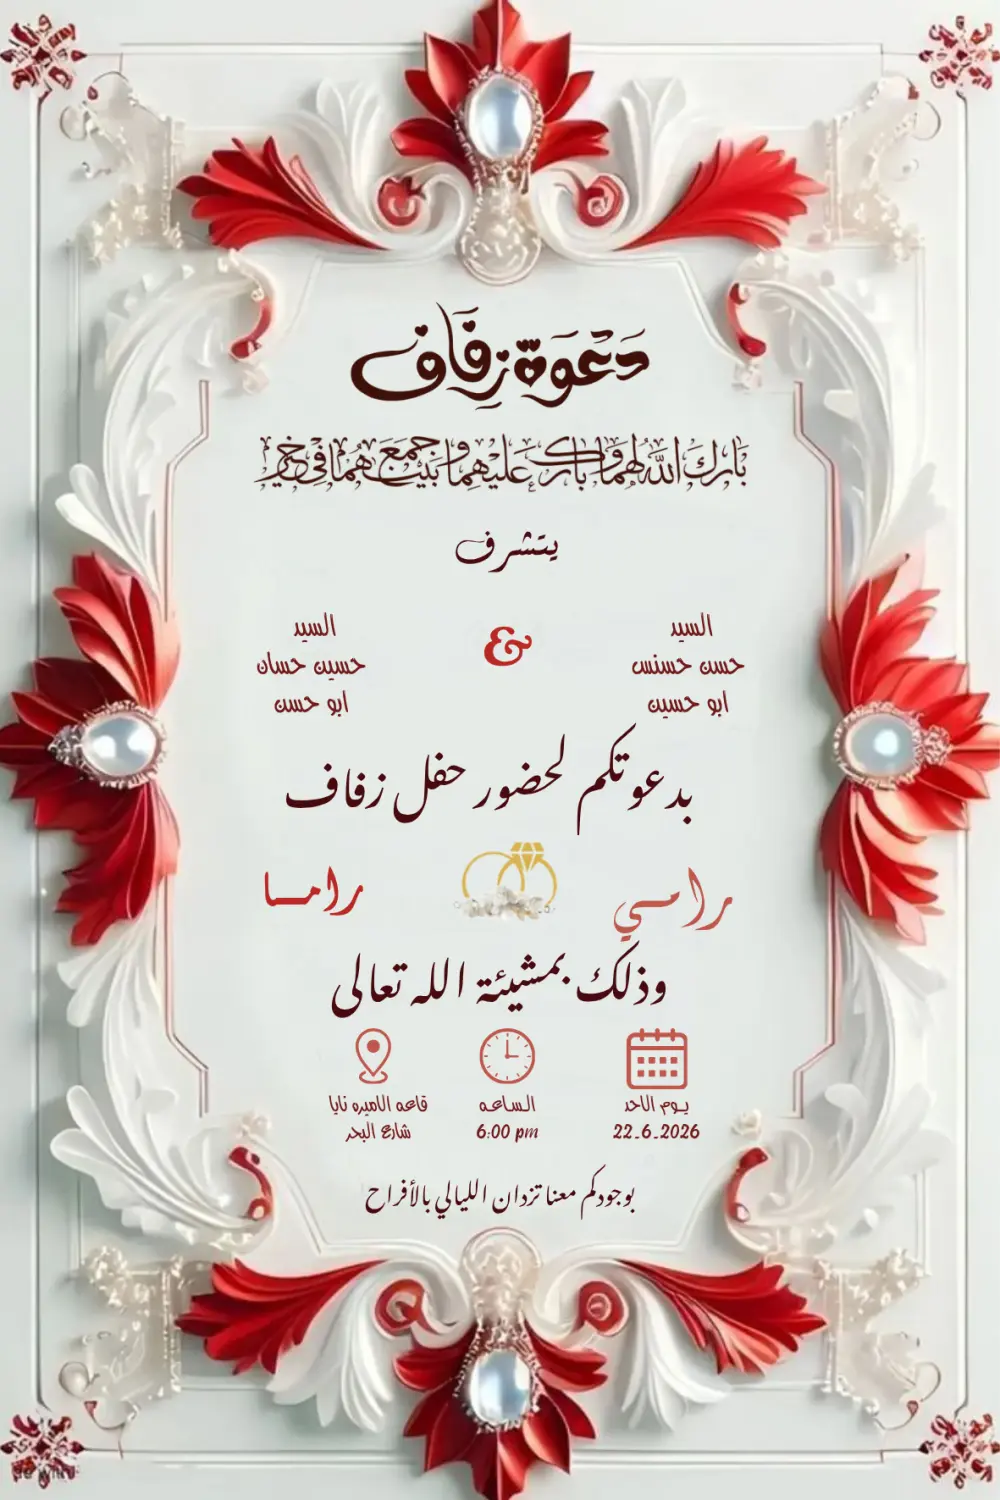 دَعْوَة زِفَاف
بَارَكَ اللهُ لَهُمَا وَبَارَكَ عَلَيْهِمَا وَجَمَعَ بَيْنَهُمَا فِي خَيْر
يتشرف
السيد
حسن حسنس
ابو حسين
&
السيد
حسين حسان
ابو حسن
بدعوتكم لحضور حفل زفاف
رامي
راما
وذلك بمشيئة الله تعالى
يوم الاحد
22-6-2026
الساعه
6:00 pm
قاعه الاميره نايا
شارع البحر
بوجودكم معنا تزدان الليالي بالأفراح